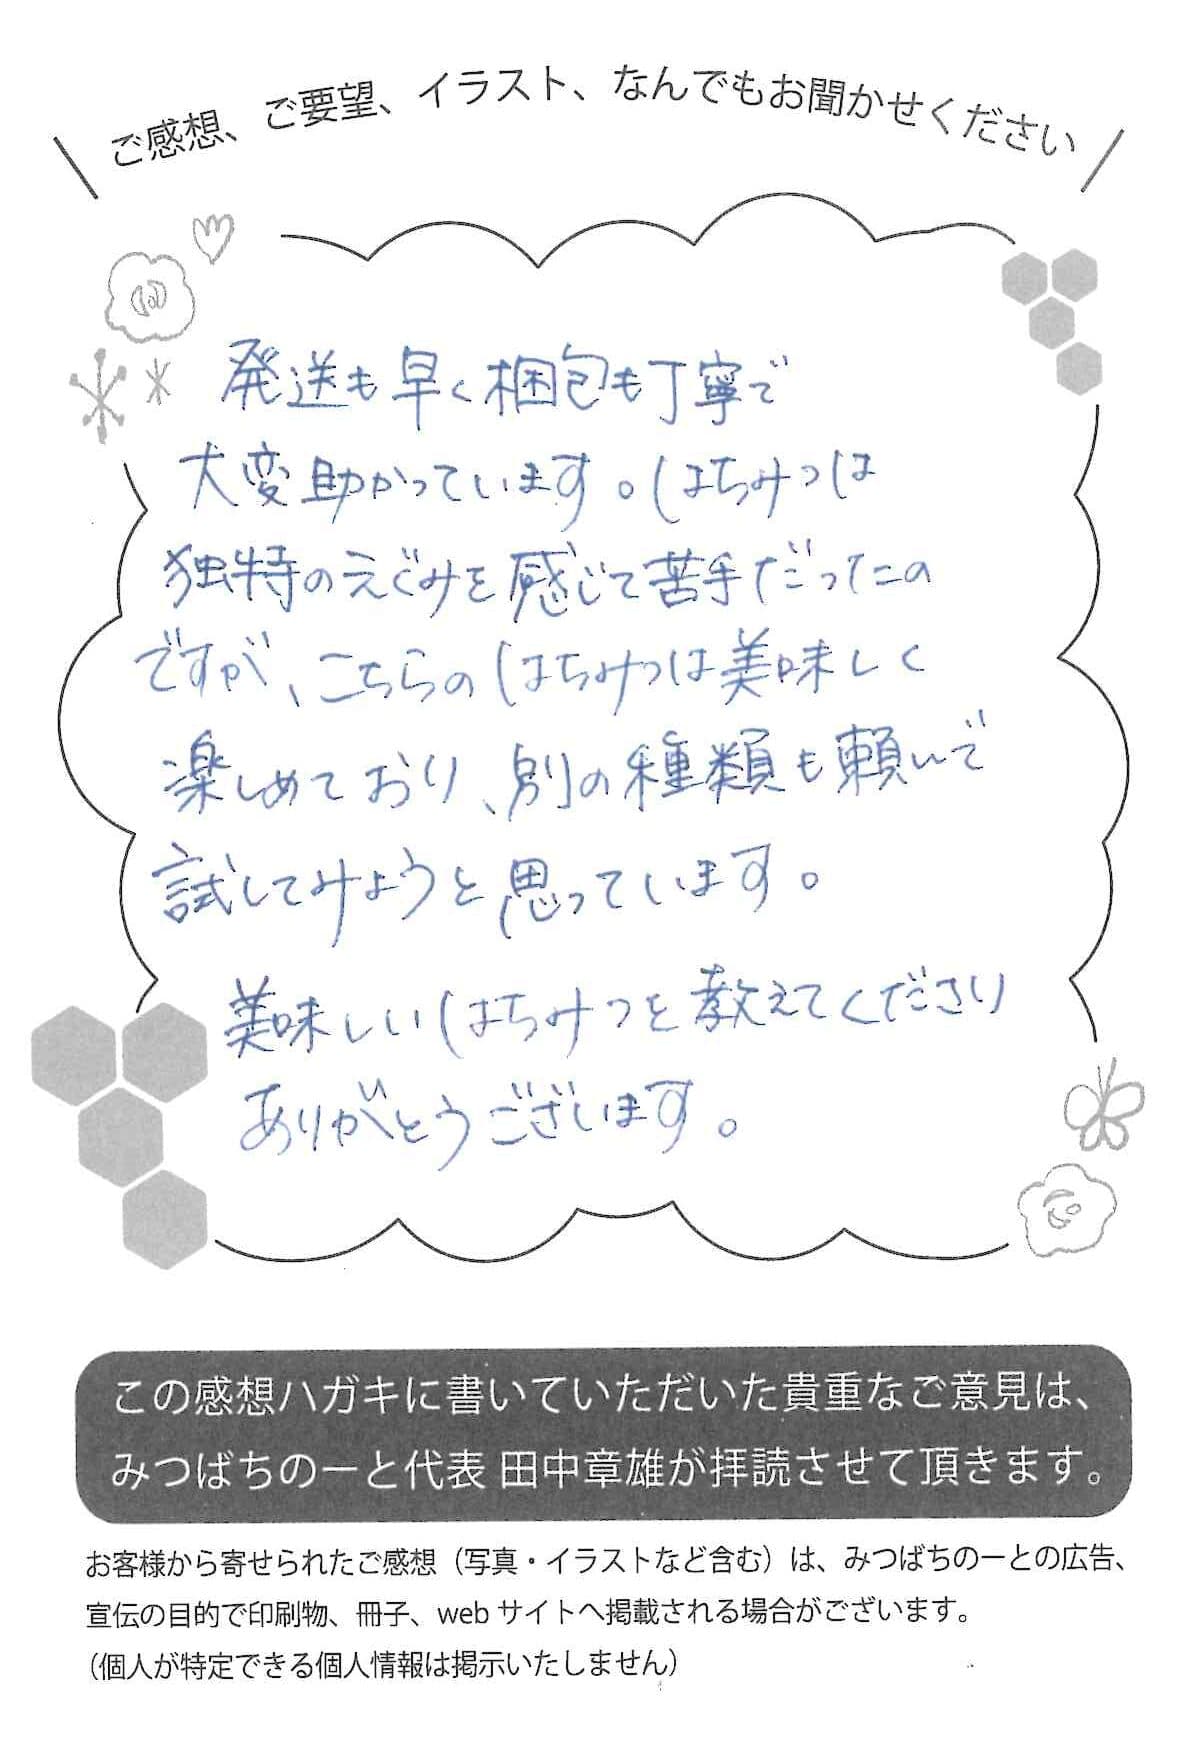 ご感想、ご要望、イラスト、なんでもお聞かせください
発送も早く梱包も丁寧で
大変助かっています。はちみつは
独特のえぐみを感じて苦手だったの
ですが、こちらのはちみつは美味しく
楽しめており、別の種類も頼んで
試してみようと思っています。
美味しいはちみつを教えてくださり
ありがとうございます。
この感想ハガキに書いていただいた貴重なご意見は、
みつばちのーと代表 田中章雄が拝読させて頂きます。
お客様から寄せられたご感想（写真・イラストなど含む）は、みつばちのーとの広告、
宣伝の目的で印刷物、冊子、web サイトへ掲載される場合がございます。
（個人が特定できる個人情報は掲示いたしません）